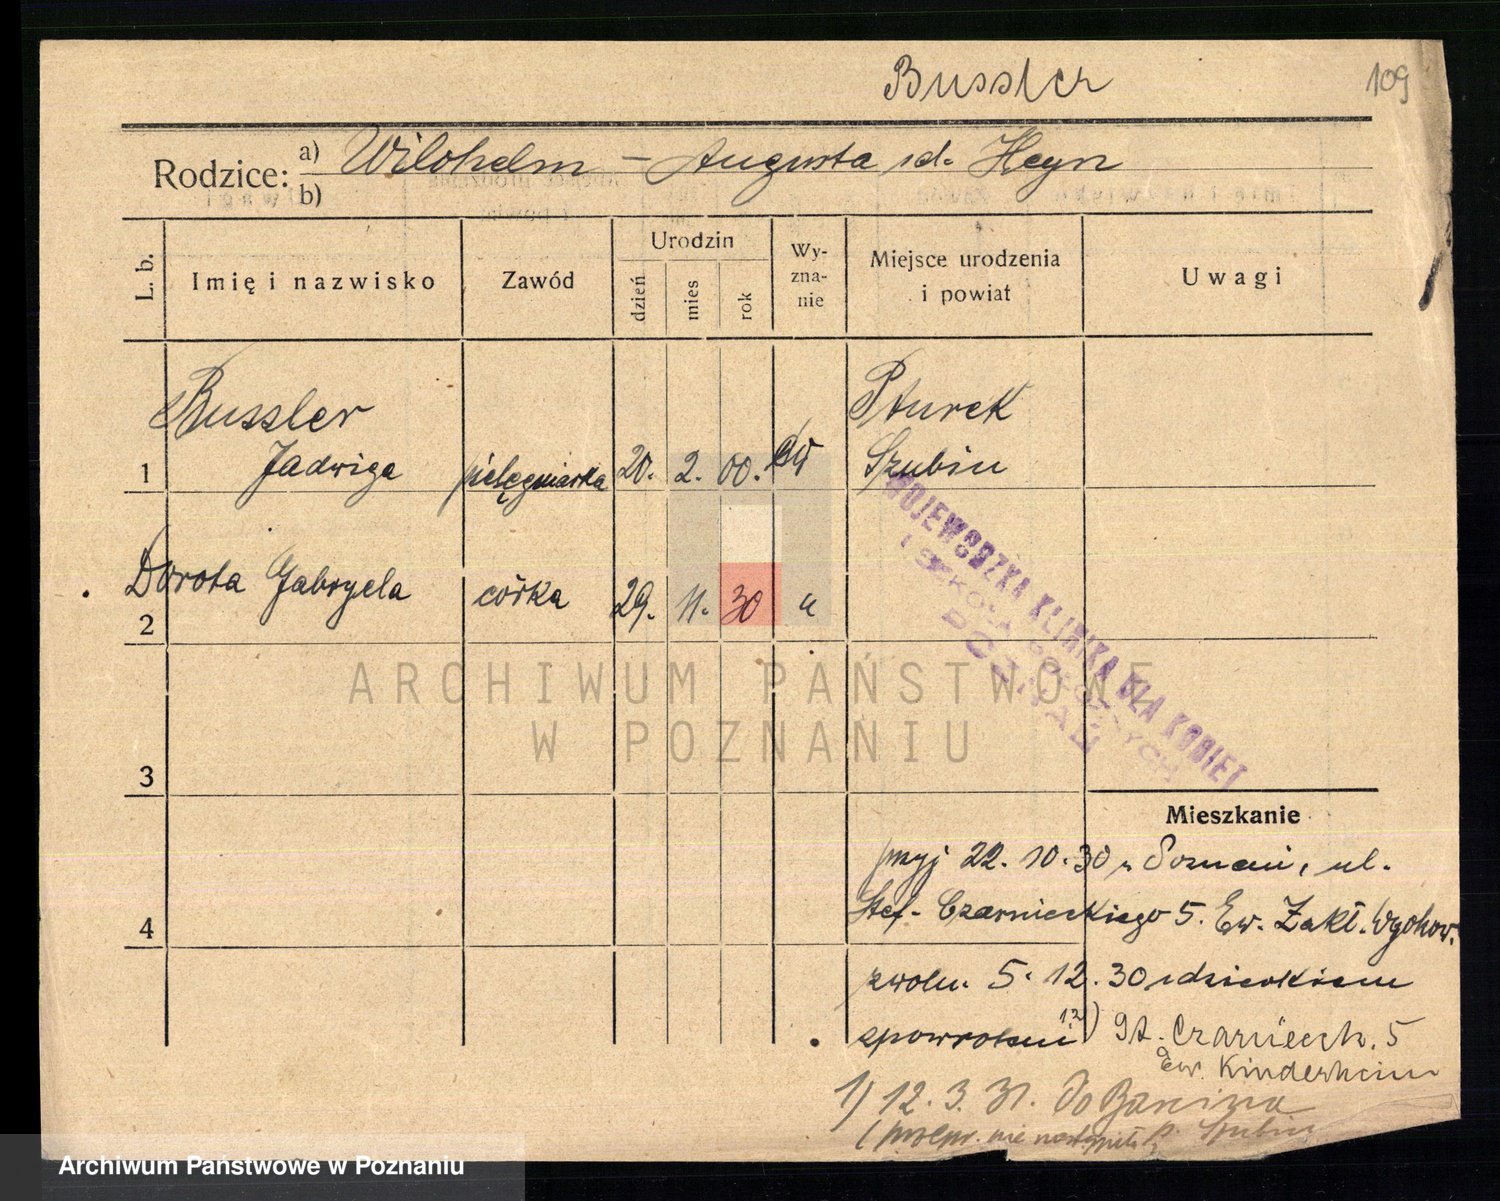 Bussler
109
Rodzice: a) Wilohelm – Augusta zd. Heyn
b)
L. b.
Imię i nazwisko
Zawód
Urodzin
dzień
mies
rok
Wy-
zna-
nie
Miejsce urodzenia
i powiat
Uwagi
Bussler
Jadwiga
1
pielęgniarka
20. 2. 00.
ew
Pturek
Szubin
Dorota Gabryela
2
córka
29. 11. 30
"
WOJEWÓDZKA KLINIKA DLA KOBIET
I SZKOŁA POŁOŻNYCH
POZNAŃ
ARCHIWUM PAŃSTWOWE
W POZNANIU
3
4
Mieszkanie
przyj 22. 10. 30 z Poznani, ul.
Stef. Czarnieckiego 5. Ew. Zakł. Wychow.
zwoln. 5. 12. 30 z dzieckiem
spowrotem 12) St. Czarnieck. 5
Ew. Kinderheim
1) 12. 3. 31. do
nie p. Szubin
Archiwum Państwowe w Poznaniu